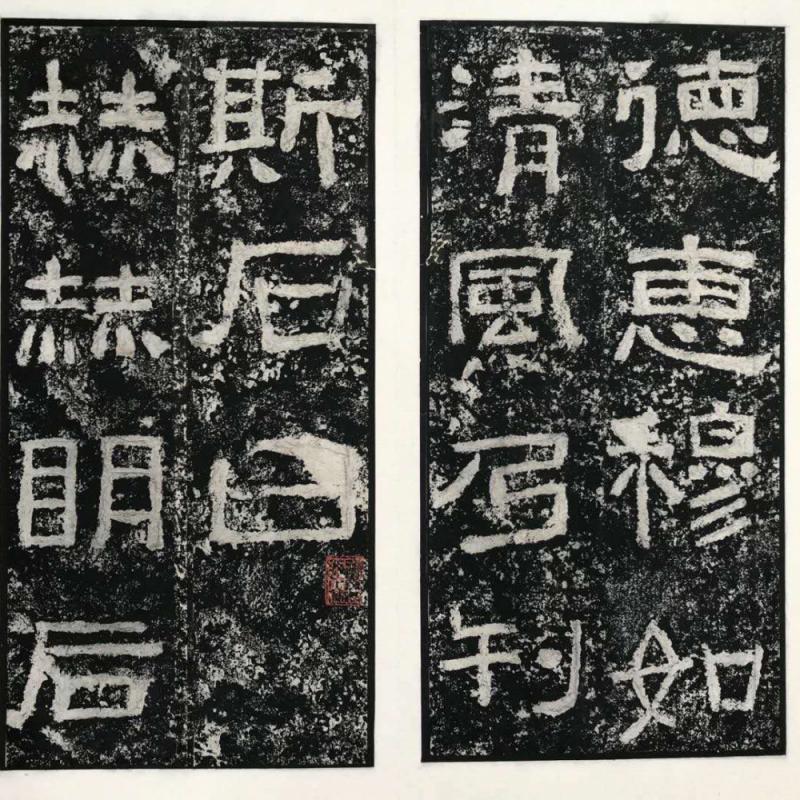 德惠穆如
清風乃刊
斯石曰
赫赫明后